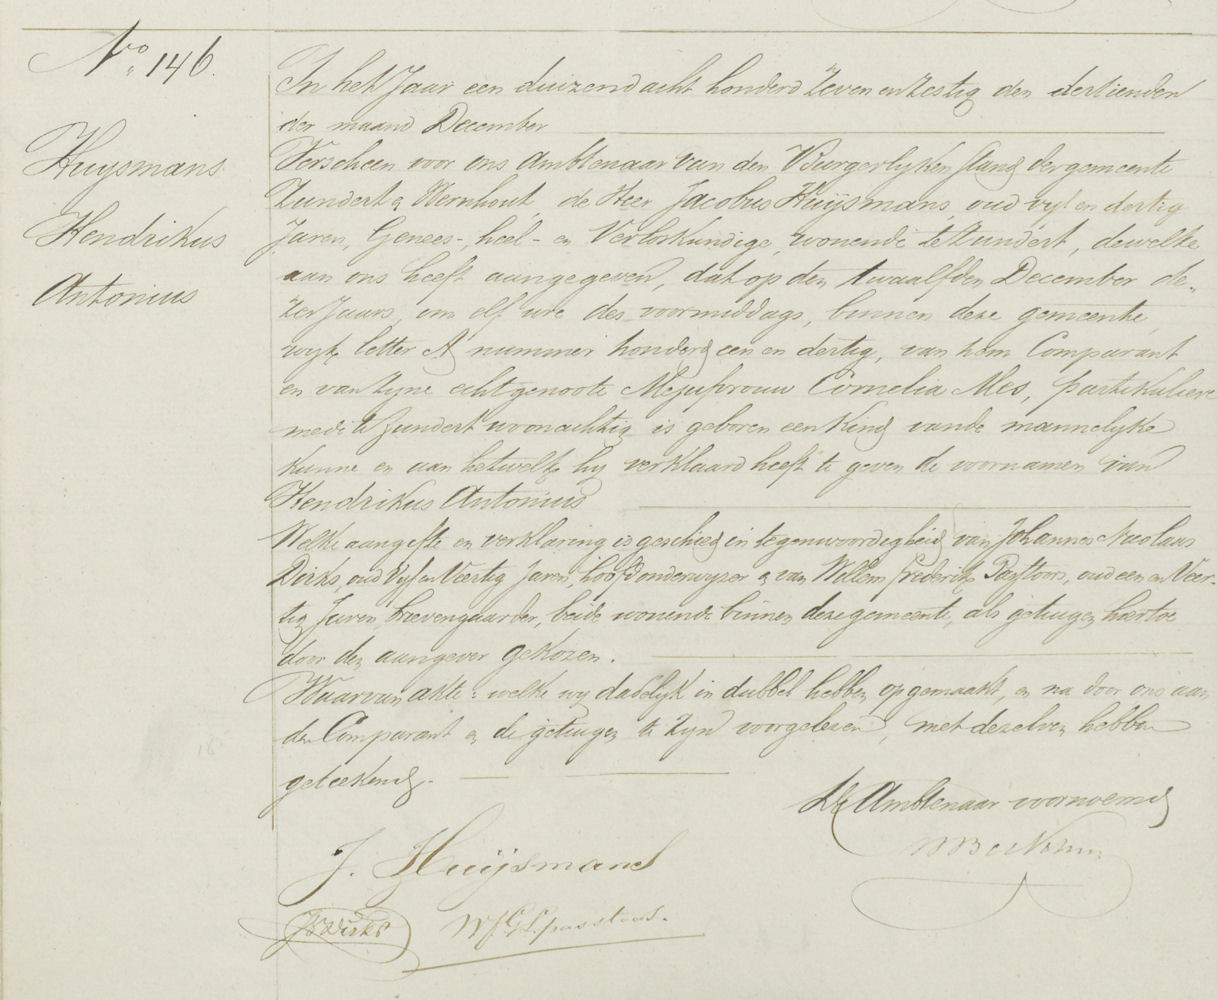 No. 146.
Huysmans
Hendrikus
Antonius
In het Jaar een duizend acht honderd Zeven en Zestig den dertienden
der maand December
Verscheen voor ons Ambtenaar van den Burgerlyken stand der gemeente
Zundert & Wernhout, de Heer Jacobus Huijsmans, oud vyf en dertig
Jaren, Genees-, heel- en Verloskundige, wonende te Zundert, dewelke
aan ons heeft aangegeven, dat op den twaalfden December de-
zer Jaars, om elf ure des voormiddags, binnen deze gemeente,
wyk letter A nummer honderd een en dertig, van hem Comparant
en van zyne echtgenoote Mejufvrouw Cornelia Mes, partikuliere
mede te Zundert woonachtig is geboren een Kind van de mannelyke
Kunne en aan hetwelk hy verklaard heeft te geven de voornamen van
Hendrikus Antonius
Welke aangifte en verklaring is geschied in tegenwoordigheid van Johannes Nicolaus
Dirks, oud Vyf en Veertig Jaren, hoofdonderwyzer & van Willem Frederik Pasttoors, oud een en Veer-
tig Jaren, brievengaarder, beide wonende binnen deze gemeente, als getuigen hiertoe
door den aangever gekozen.
Waarvan akte: welke wy dadelyk in dubbel hebben opgemaakt, en na door ons aan
den Comparant en de getuigen te zyn voorgelezen, met dezelven hebben
geteekend.
De Ambtenaar voornoemd
J. Huijsmans
Dirks